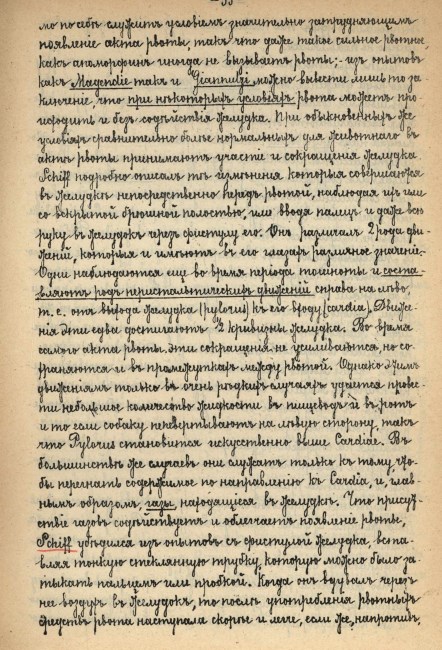 — 33
мо по себѣ служитъ условіемъ значительно затрудняющимъ
появленіе акта рвоты, такъ что даже такое сильное рвотное
какъ апоморфинъ иногда не вызываетъ рвоты; — изъ опытовъ
какъ Magendie такъ и Gianuzzi можно вывести лишь то за-
ключеніе, что при нѣкоторыхъ условіяхъ рвота можетъ про-
исходить и безъ содѣйствія желудка. При обыкновенныхъ же
условіяхъ сравнительно болѣе нормальныхъ для животнаго въ
актѣ рвоты принимаютъ участіе и сокращенія желудка
Schiff подробно описалъ тѣ измѣненія которыя совершаются
въ желудкѣ непосредственно передъ рвотой, наблюдая ихъ или
со вскрытой брюшной полостью, или вводя палецъ и даже всю
руку въ желудокъ черезъ фистулу его. Онъ различалъ 2 рода дви-
женій, которыя и имѣютъ въ его глазахъ различное значеніе.
Одни наблюдаются еще во время періода тошноты и соста-
вляютъ родъ перистальтическихъ движеній справа на лѣво,
т. е. отъ выхода желудка (pylorus) къ его входу (cardia). Движе-
нія эти едва достигаютъ 2 кривизны желудка. Во время
самого акта рвоты эти сокращенія не усиливаются, но со-
храняются и въ промежуткахъ между рвотой. Однако этимъ
движеніямъ только въ очень рѣдкихъ случаяхъ удается прове-
сти небольшое количество жидкости въ пищеводъ и въ ротъ
и то если собаку перевертываютъ на лѣвую сторону, такъ
что Pylorus становится искуственно выше Cardiae. Въ
большинствѣ же случаевъ они служатъ только къ тому, что-
бы перегнать содержимое по направленію къ Cardia, и, глав-
нымъ образомъ, газы, находящіеся въ желудкѣ. Что присут-
ствіе газовъ содѣйствуетъ и облегчаетъ появленіе рвоты,
Schiff убѣдился изъ опытовъ съ фистулой желудка, вста-
вляя тонкую стеклянную трубку, которую можно было за-
тыкать пальцемъ или пробкой. Когда онъ вдувалъ черезъ
нее воздухъ въ желудокъ, то послѣ употребленія рвотныхъ
средствъ рвота наступала скорѣе и легче, если же, напротивъ,